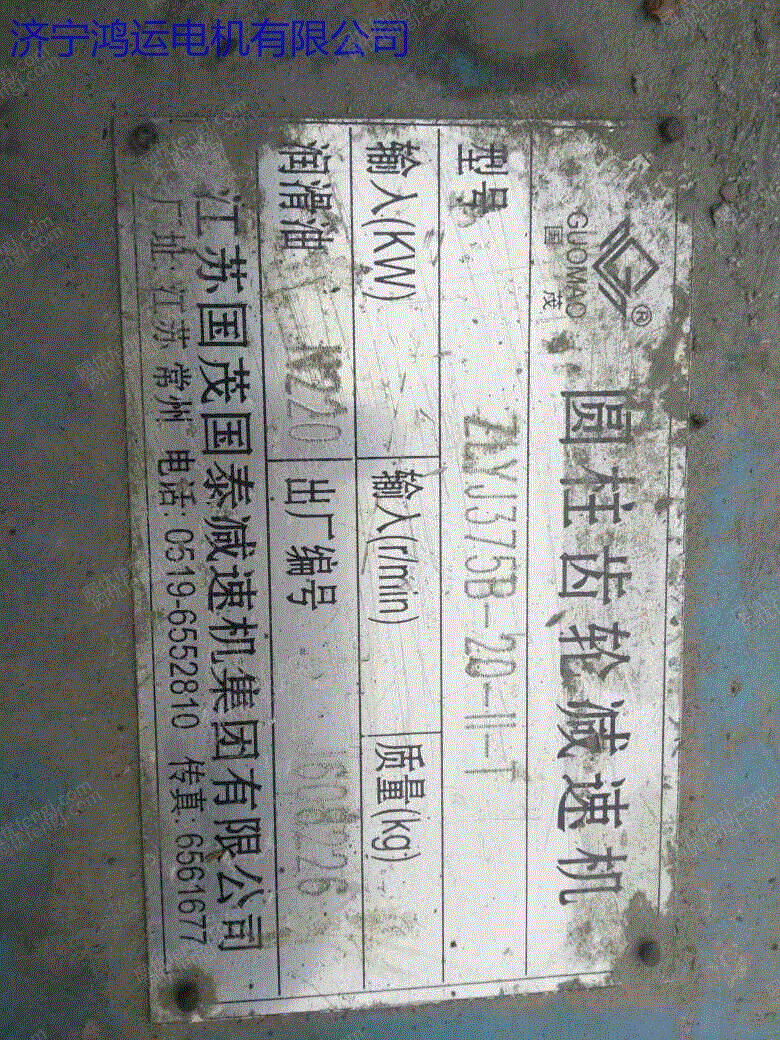 济宁鸿运电机有限公司
GUOMAO
国 茂
圆柱齿轮减速机
型号 ZLYJ375B-20-II-T
输入(KW) 输入(r/min) 质量(kg)
润滑油 N220 出厂编号 1608226
江苏国茂国泰减速机集团有限公司
厂址:江苏 常州 电话:0519-6552810 传真:6561677